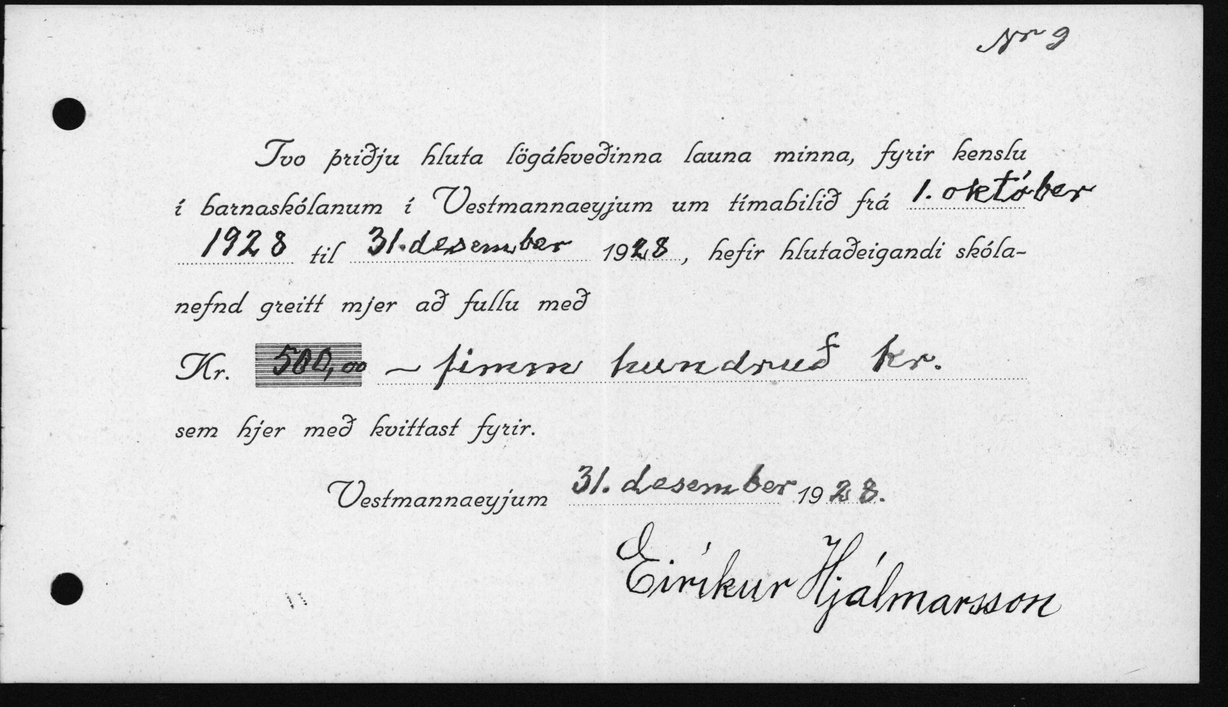 Nr 9
Tvo þriðju hluta lögákveðinna launa minna, fyrir kenslu
í barnaskólanum í Vestmannaeyjum um tímabilið frá 1. október
1928 til 31. desember 1928, hefir hlutaðeigandi skóla-
nefnd greitt mjer að fullu með
Kr. 500,00 — fimm hundruð kr.
sem hjer með kvittast fyrir.
Vestmannaeyjum 31. desember 1928.
Eiríkur Hjálmarsson